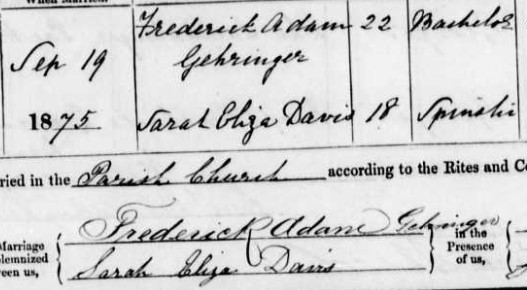 When Married.
Frederick Adam 22 Bachelor
Sep 19 Gehringer
1875 Sarah Eliza Davis 18 Spinster
ried in the Parish Church according to the Rites and C
Frederick Adam Gehringer
Marriage
olemnized
een us,
Sarah Eliza Davis
in the
Presence
of us,